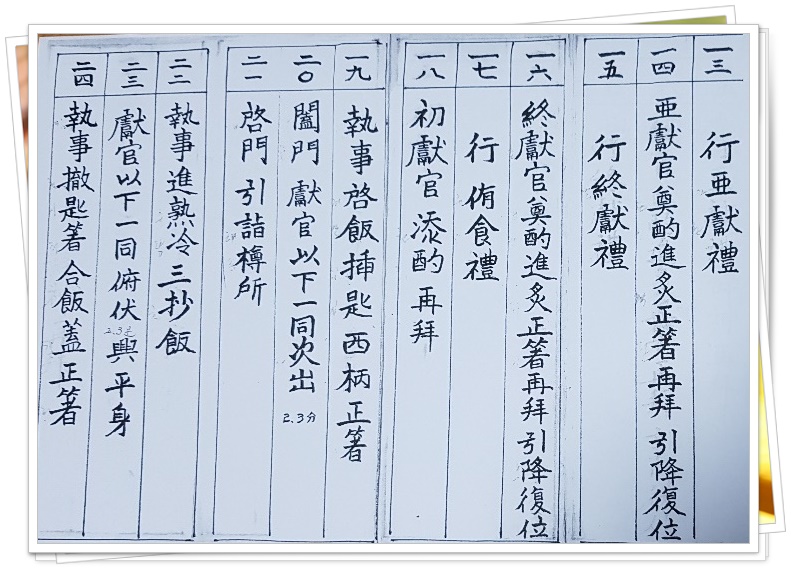 一三 行亜獻禮
一四 亜獻官奠酌進炙正箸再拜 引降復位
一五 行終獻禮
一六 終獻官奠酌進炙正箸再拜引降復位
一七 行侑食禮
一八 初獻官添酌再拜
一九 執事啓飯揷匙西柄正箸
二〇 闔門獻官以下一同次出 2.3分
二一 啓門引詣樽所
二二 執事進熟冷三抄飯
二三 獻官以下一同俯伏興平身
二四 執事撤匙箸合飯蓋正箸